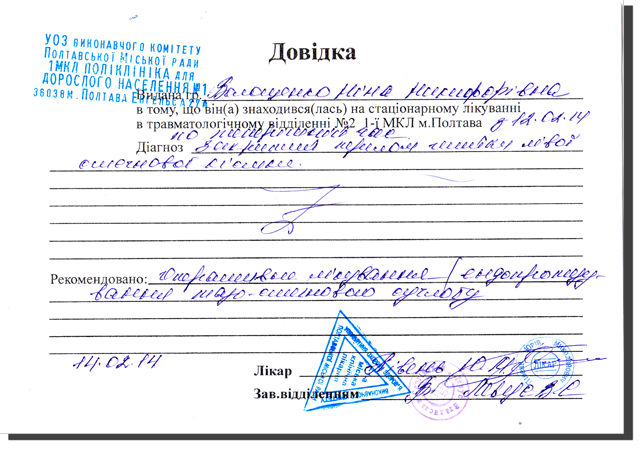 Довідка
УОЗ ВИКОНАВЧОГО КОМІТЕТУ
ПОЛТАВСЬКОЇ МІСЬКОЇ РАДИ
1МКЛ ПОЛІКЛІНІКА ДЛЯ
ДОРОСЛОГО НАСЕЛЕННЯ №1
36038 М. ПОЛТАВА ЕНГЕЛЬСА
Видана гр. Ніна Никифорівна
в тому, що він(а) знаходився(лась) на стаціонарному лікуванні
в травматологічному відділенні №2 1-ї МКЛ м.Полтава з 12.02.14
по час
Діагноз Закритий перелом шийки лівої
стегнової кістки.
Рекомендовано: Оперативне лікування / ендопротезу-
вання тазо-стегнового суглобу
14.02.14
Лікар
ЛІКАР
Зав.відділенням